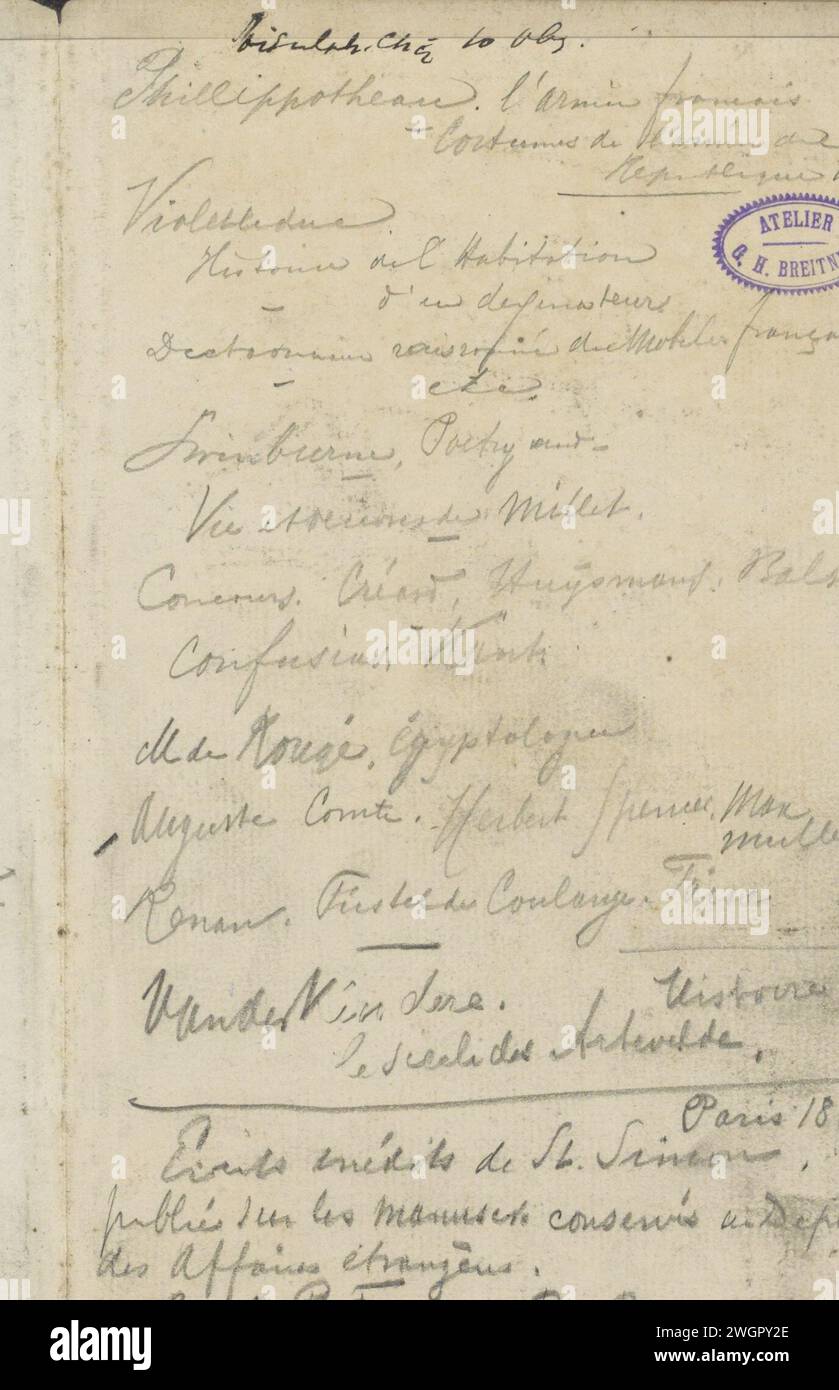 Phillippotheau. l'armée français
Costumes de l'armée de
République
Violetleduc
ATELIER
G. H. BREITN
Histoire de l'Habitation
d'un
Dectionnaire raisonné du Mobilier frança
etc.
Swinburne, Poetry and
Vie et oeuvres de Millet.
Concours. Huÿsmans. Balz
Confusius, Kant.
M de Rougé, égyptologue
Auguste Comte. Herbert Spencer, Max
mulle
Renan. Fustel de Coulange. Taine
VanderKindere. Histoire
le siecle des Artevelde.
Paris 18
Ecrits inédits de St. Simon,
publiés sur les manuscrits conservés au Dep
des Affaires étrangères.
alamy
Image ID: 2WGPY2E
www.alamy.com